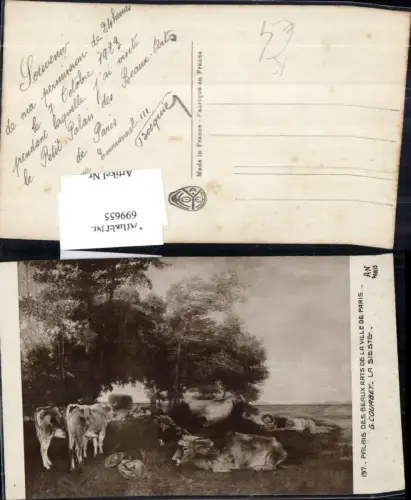 Souvenir
de ma permission de 24 heures
le 7 Octobre 1922
pendant laquelle j'ai visité
le Petit Palais des Beaux Arts
de Paris
Emmanuel !!!
Made in France - Fabriqué en France
Artikel Nr.
699655
*Artikel Nr.
197_ PALAIS DES BEAUX ARTS DE LA VILLE DE PARIS_
G. COURBET_ LA SIESTE_
AN
PARIS